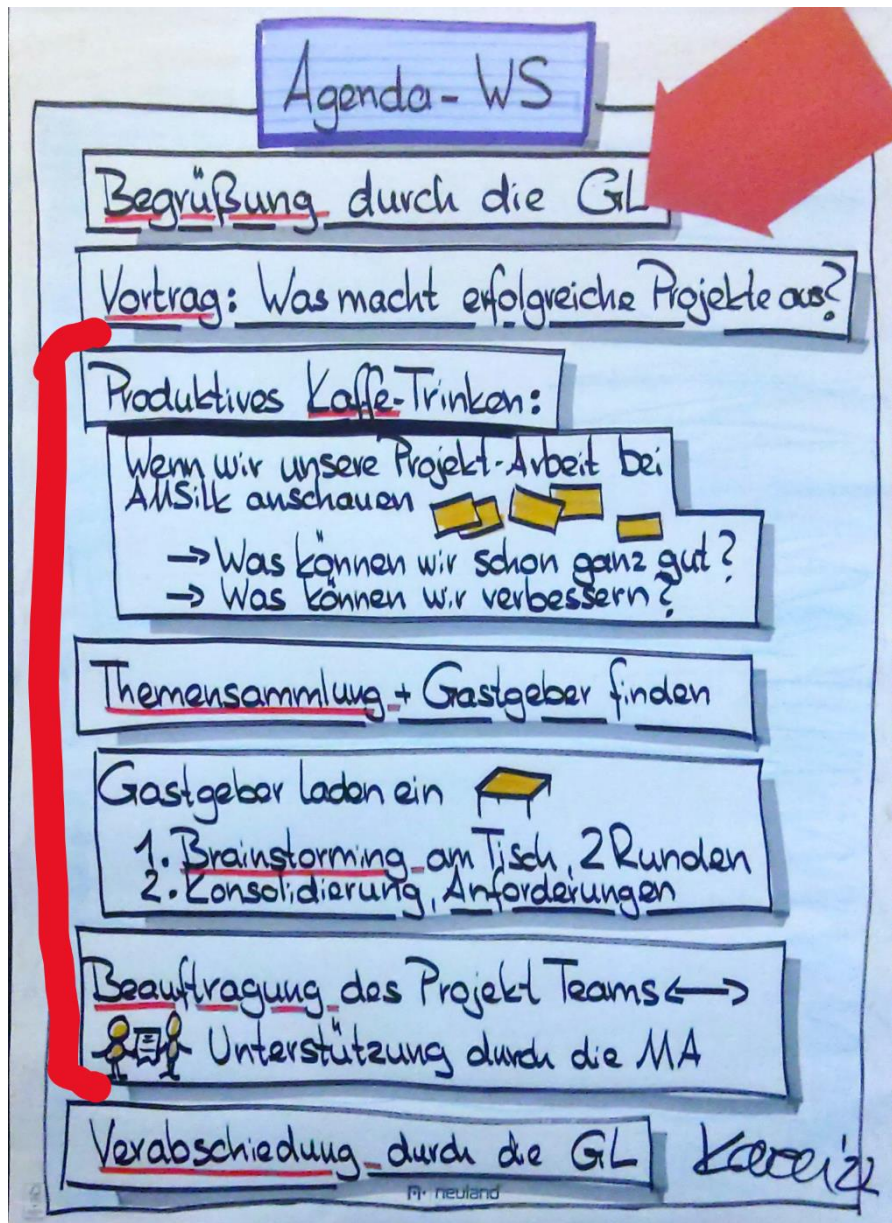 Agenda - WS
Begrüßung durch die GL
Vortrag: Was macht erfolgreiche Projekte aus?
Produktives Kaffe-Trinken:
Wenn wir unsere Projekt-Arbeit bei
AMSilk anschauen
→ Was können wir schon ganz gut?
→ Was können wir verbessern?
Themensammlung + Gastgeber finden
Gastgeber laden ein
1. Brainstorming am Tisch, 2 Runden
2. Konsolidierung, Anforderungen
Beauftragung des Projekt Teams ↔
Unterstützung durch die MA
Verabschiedung durch die GL
'22
neuland